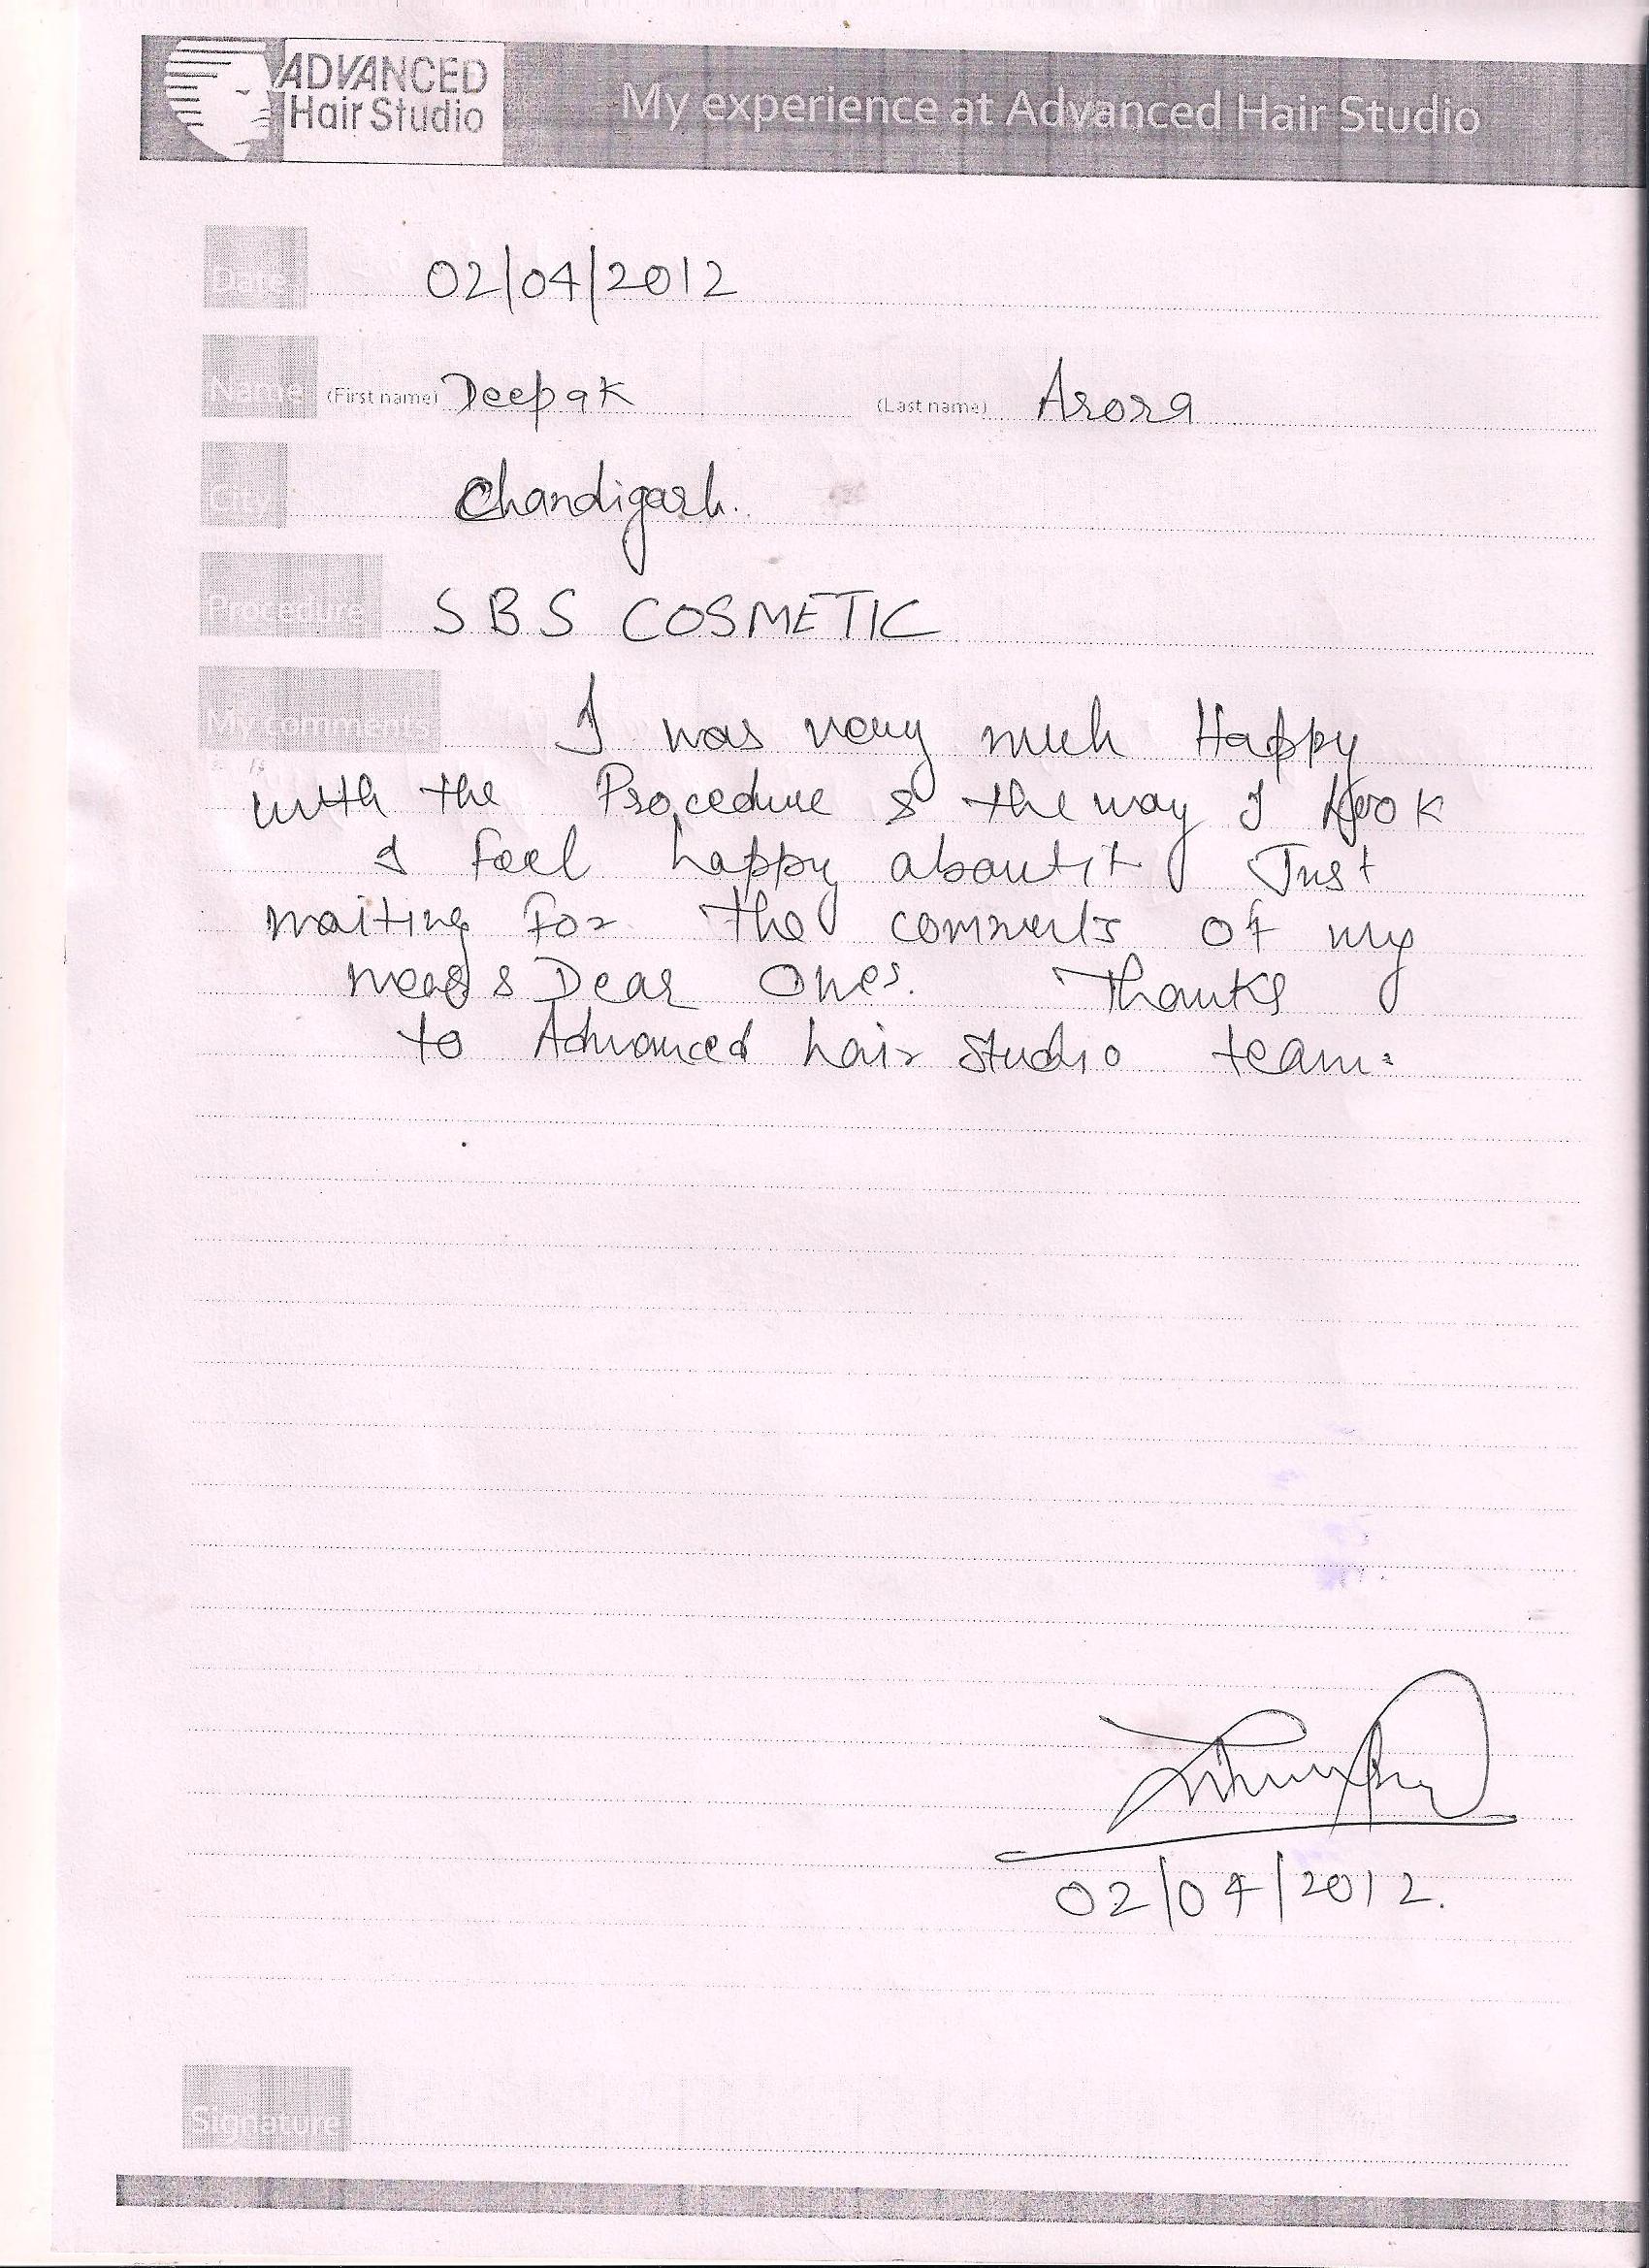 ADVANCED
Hair Studio
My experience at Advanced Hair Studio
Date 02/04/2012
Name (First name) Deepak (Last name) Arora
City Chandigarh.
Procedure SBS COSMETIC
My comments I was very much Happy
with the Procedure & the way I look
I feel happy about it Just
waiting for the comments of my
near & Dear Ones. Thanks
to Advanced hair studio team.
02/04/2012.
Signature